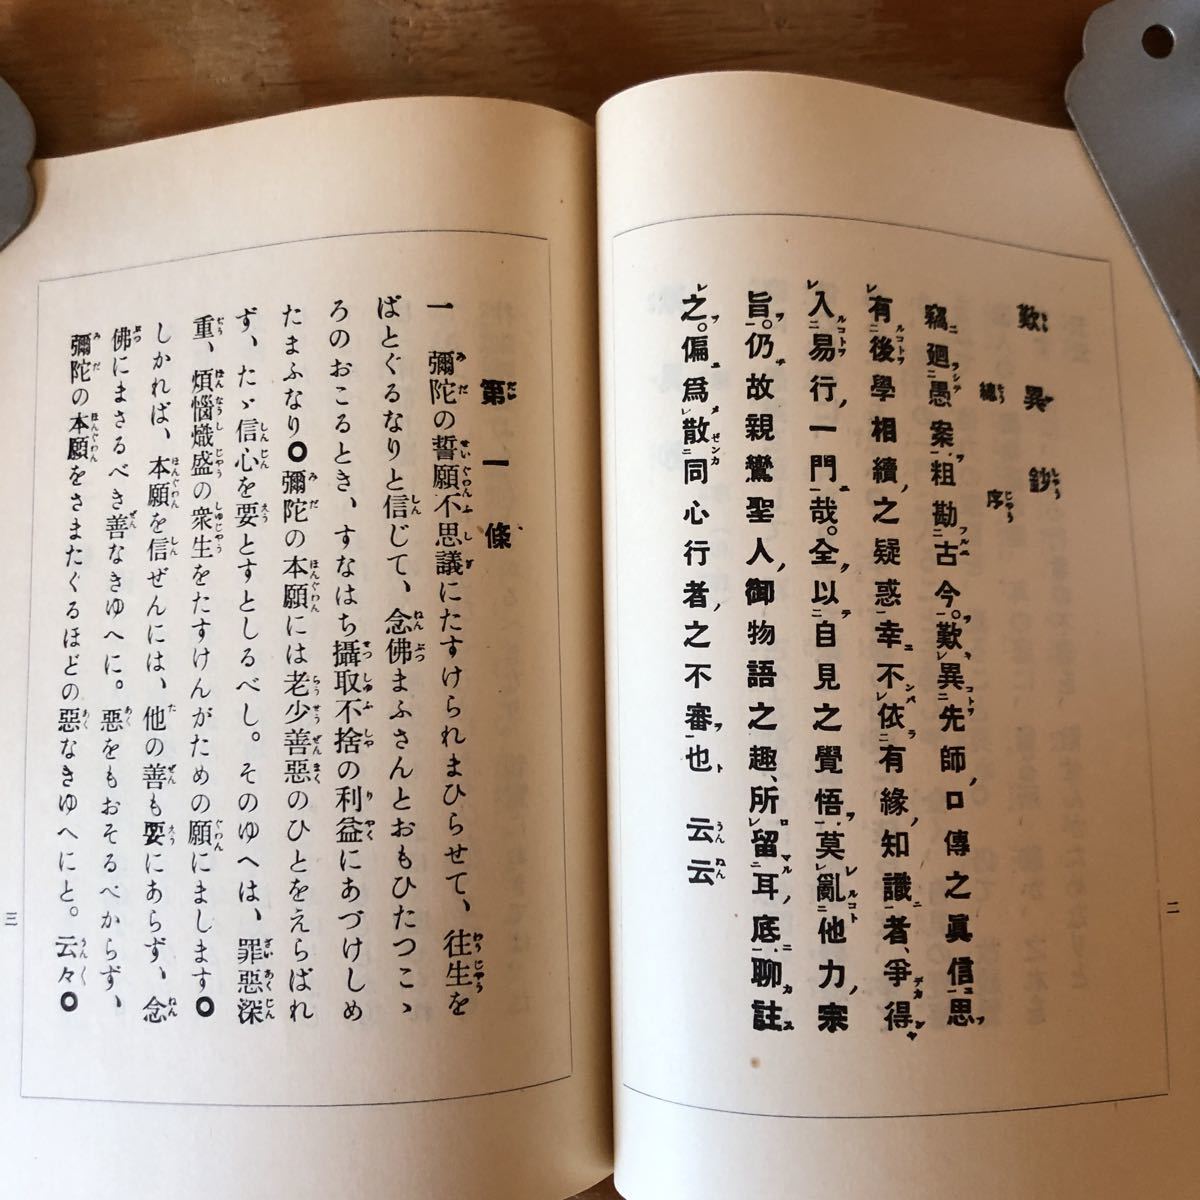 歎異鈔
總序
竊廻愚案、粗勘古今。歎異先師口傳之眞信思
有後學相續之疑惑幸不依有緣知識者、爭得
入易行一門哉。全以自見之覺悟莫亂他力宗
旨。仍故親鸞聖人御物語之趣、所留耳底、聊註
之。偏爲散同心行者之不審也 云云
二
第一條
一 彌陀の誓願不思議にたすけられまひらせて、往生を
ばとぐるなりと信じて、念佛まふさんとおもひたつこゝ
ろのおこるとき、すなはち攝取不捨の利益にあづけしめ
たまふなり。彌陀の本願には老少善惡のひとをえらばれ
ず、たゞ信心を要とすとしるべし。そのゆへは、罪惡深
重、煩惱熾盛の衆生をたすけんがための願にまします。
しかれば、本願を信ぜんには、他の善も要にあらず、念
佛にまさるべき善なきゆへに。惡をもおそるべからず、
彌陀の本願をさまたぐるほどの惡なきゆへにと。云々。
三